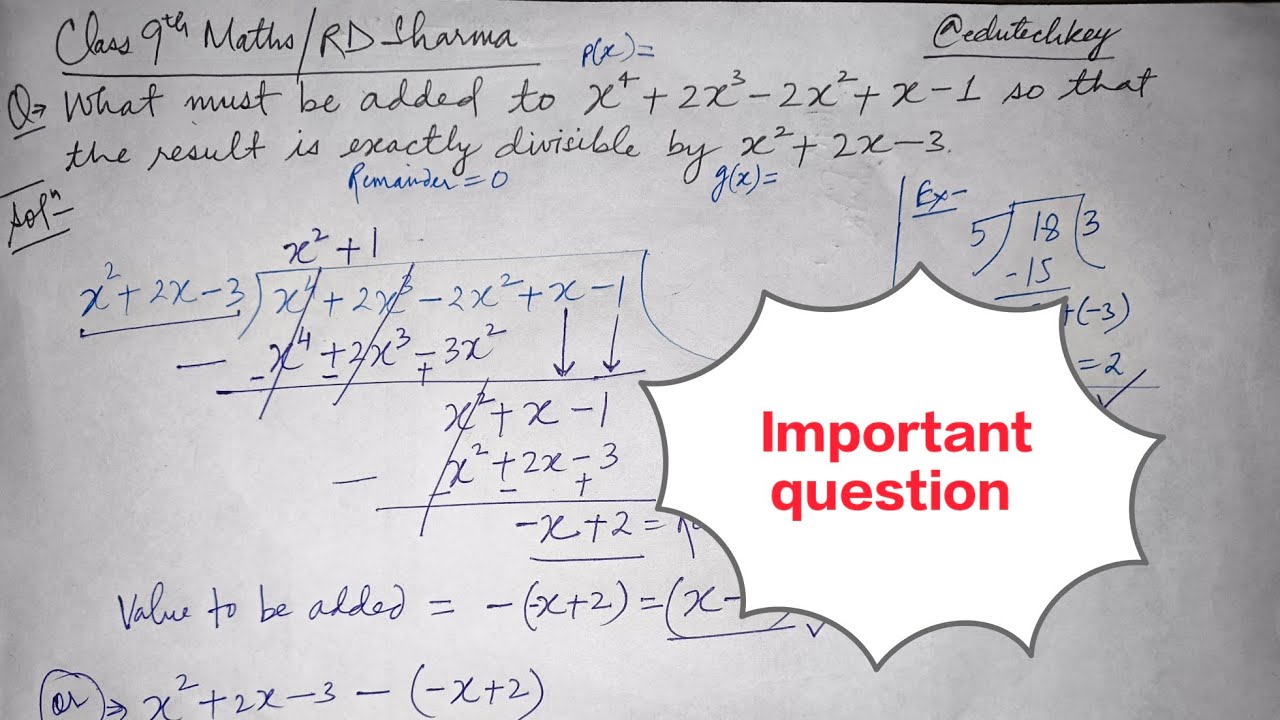 Class 9th Maths/RD Sharma
@edutechkey
p(x)=
Q→ What must be added to x⁴+2x³-2x²+x-1 so that
the result is exactly divisible by x²+2x-3.
Remainder=0
g(x)=
Solⁿ-
x²+1
x²+2x-3)x⁴+2x³-2x²+x-1
- x⁴+2x³-3x²
- - +
x²+x-1
- x²+2x-3
- - +
-x+2 =
Value to be added = -(-x+2)=(x-
or ⇒ x²+2x-3-(-x+2)
Ex-
5)18(3
-15
+(-3)
=2
Important
question